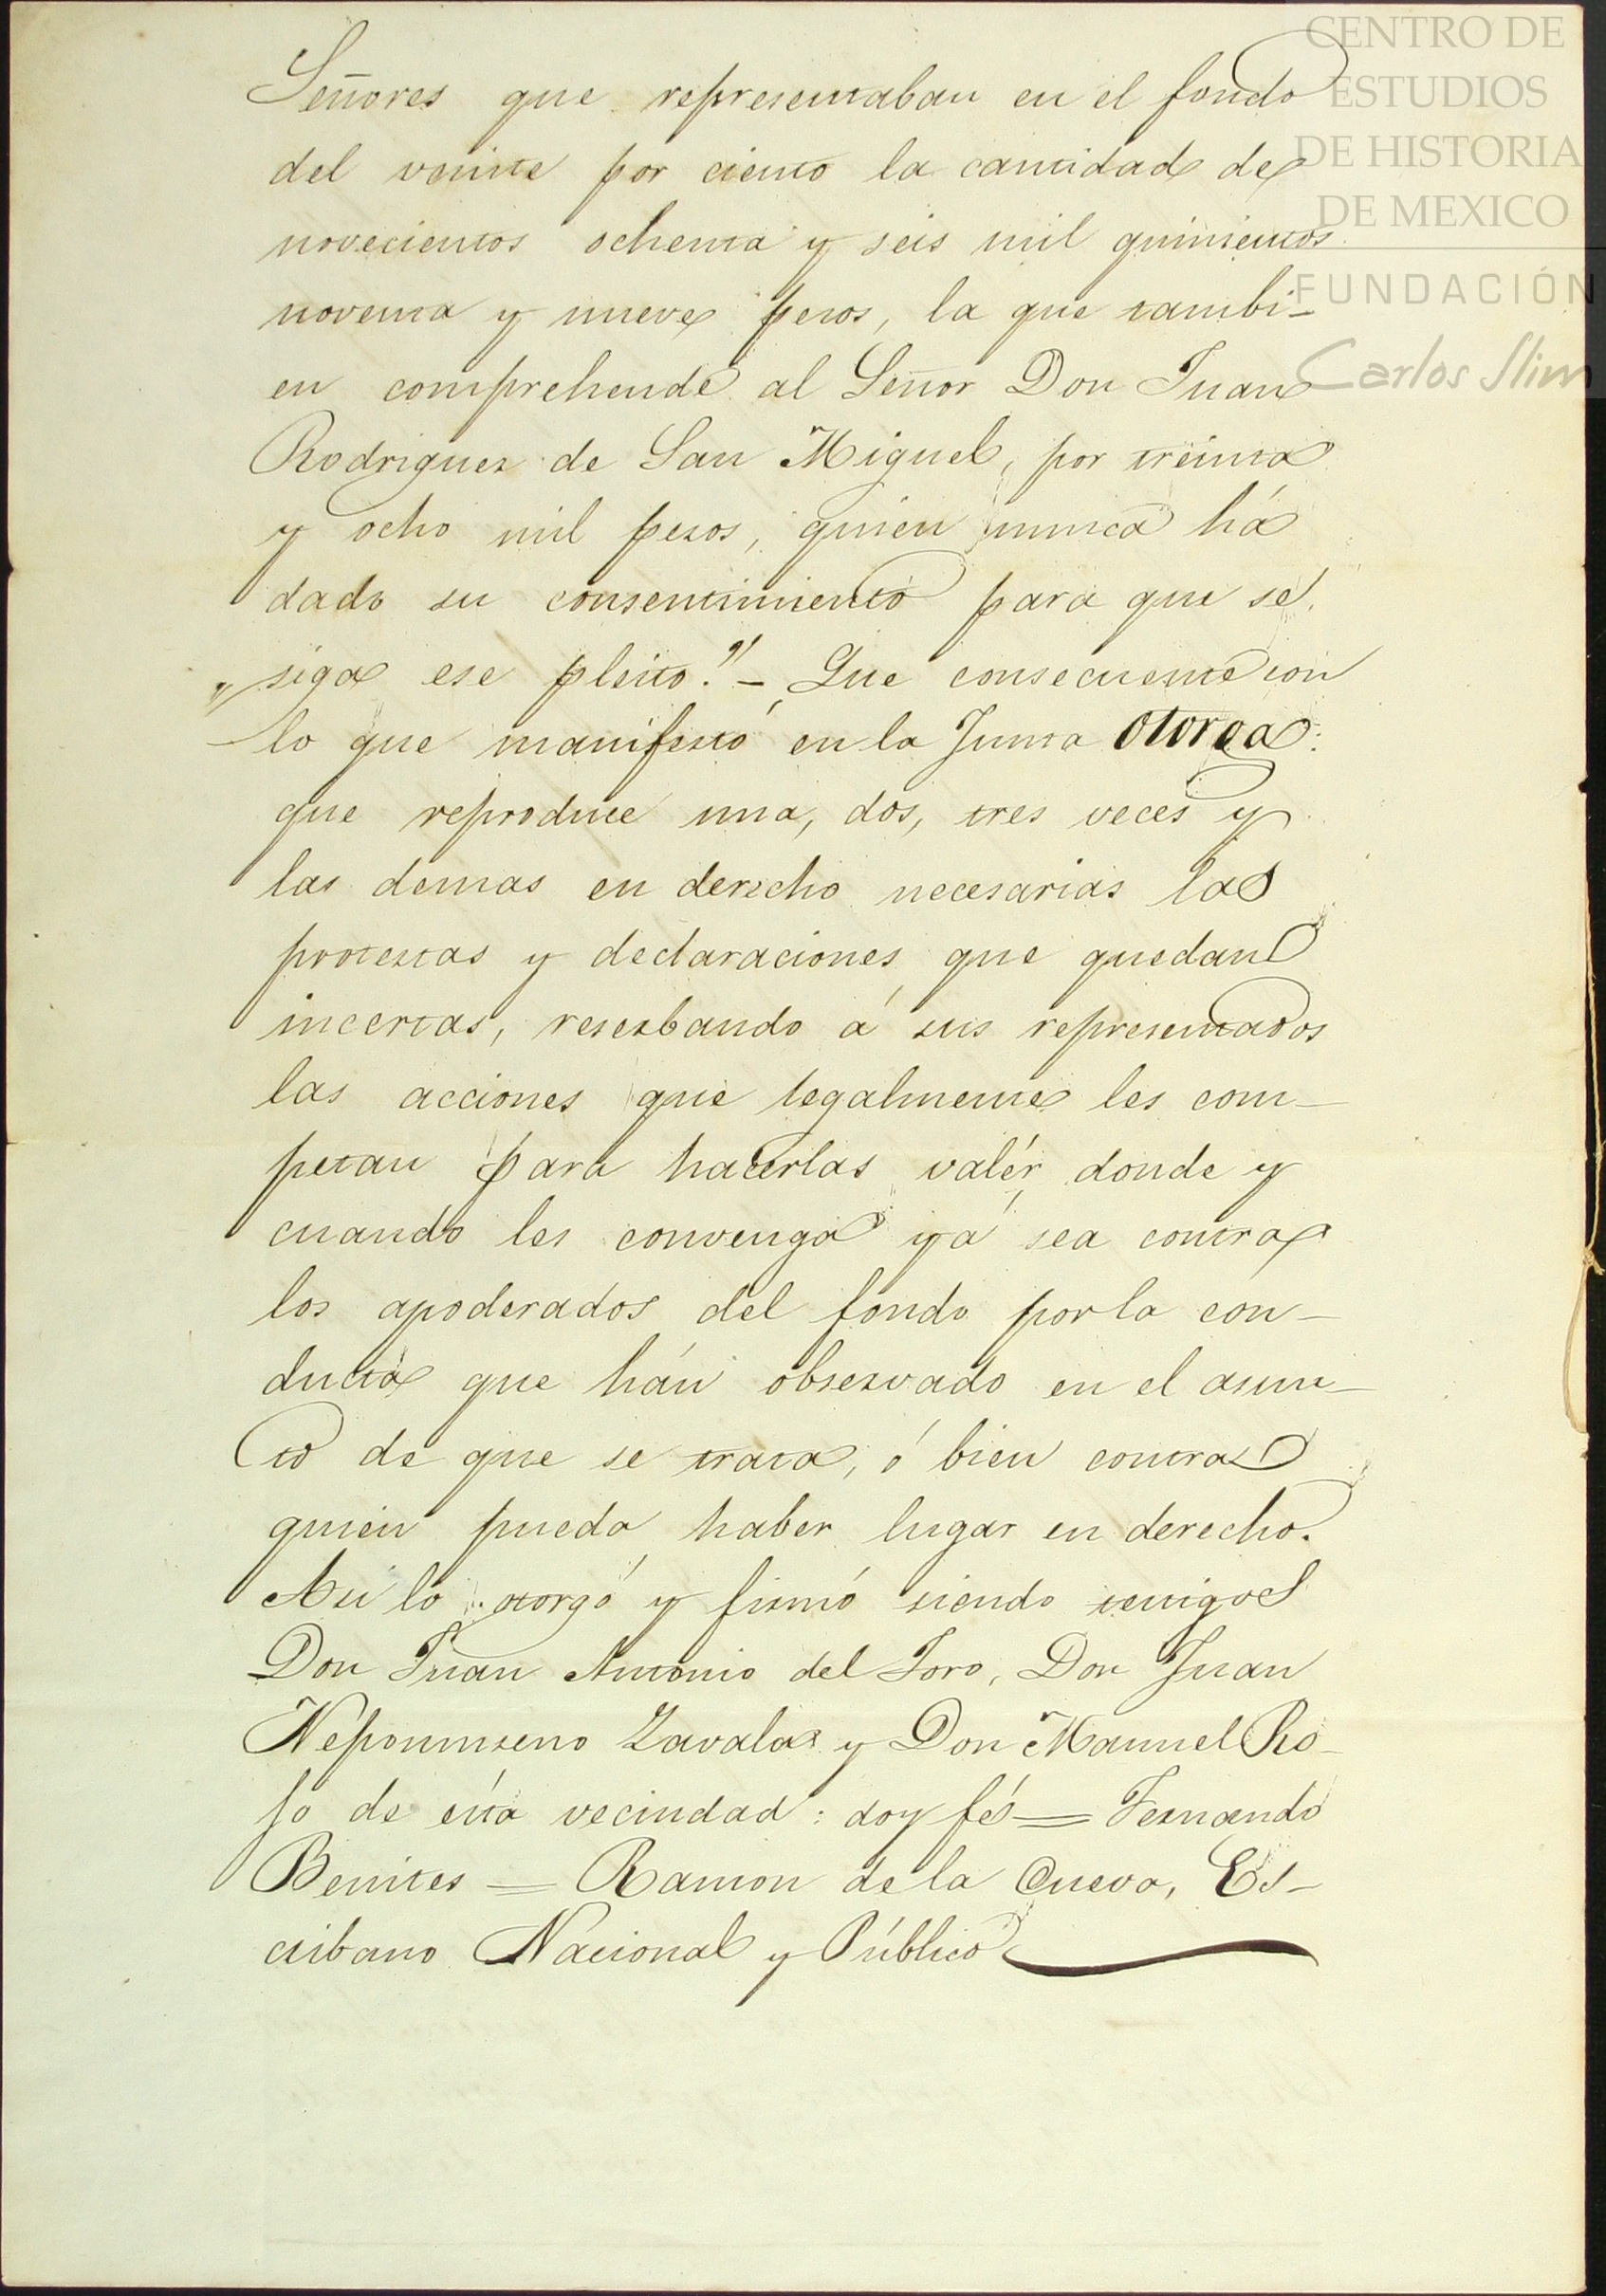 Señores que representaban en el fondo
del veinte por ciento la cantidad de
novecientos ochenta y seis mil quinientos
noventa y nueve pesos, la que tambi-
en comprehende al Señor Don Juan
Rodriguez de San Miguel, por treinta
y ocho mil pesos, quien nunca há
dado su consentimiento para que se
„ siga ese pleito." - Que consecuente con
lo que manifestó en la Junta otorga:
que reproduce una, dos, tres veces y
las demas en derecho necesarias las
protestas y declaraciones que quedan
incertas, reserbando á sus representados
las acciones que legalmente les com-
petan para hacerlas valér donde y
cuando les convenga yá sea contra
los apoderados del fondo por la con-
ducta que hán observado en el asun-
to de que se trata, ó bien contra
quien pueda haber lugar en derecho.
Asi lo otorgó y firmó siendo testigos
Don Juan Antonio del Toro, Don Juan
Nepomuseno Zavala y Don Manuel Ro-
jo de ésta vecindad: doy fé = Fernando
Benites = Ramon de la Cueva, Es-
cribano Nacional y Público
CENTRO DE
ESTUDIOS
DE HISTORIA
DE MEXICO
FUNDACIÓN
Carlos Slim